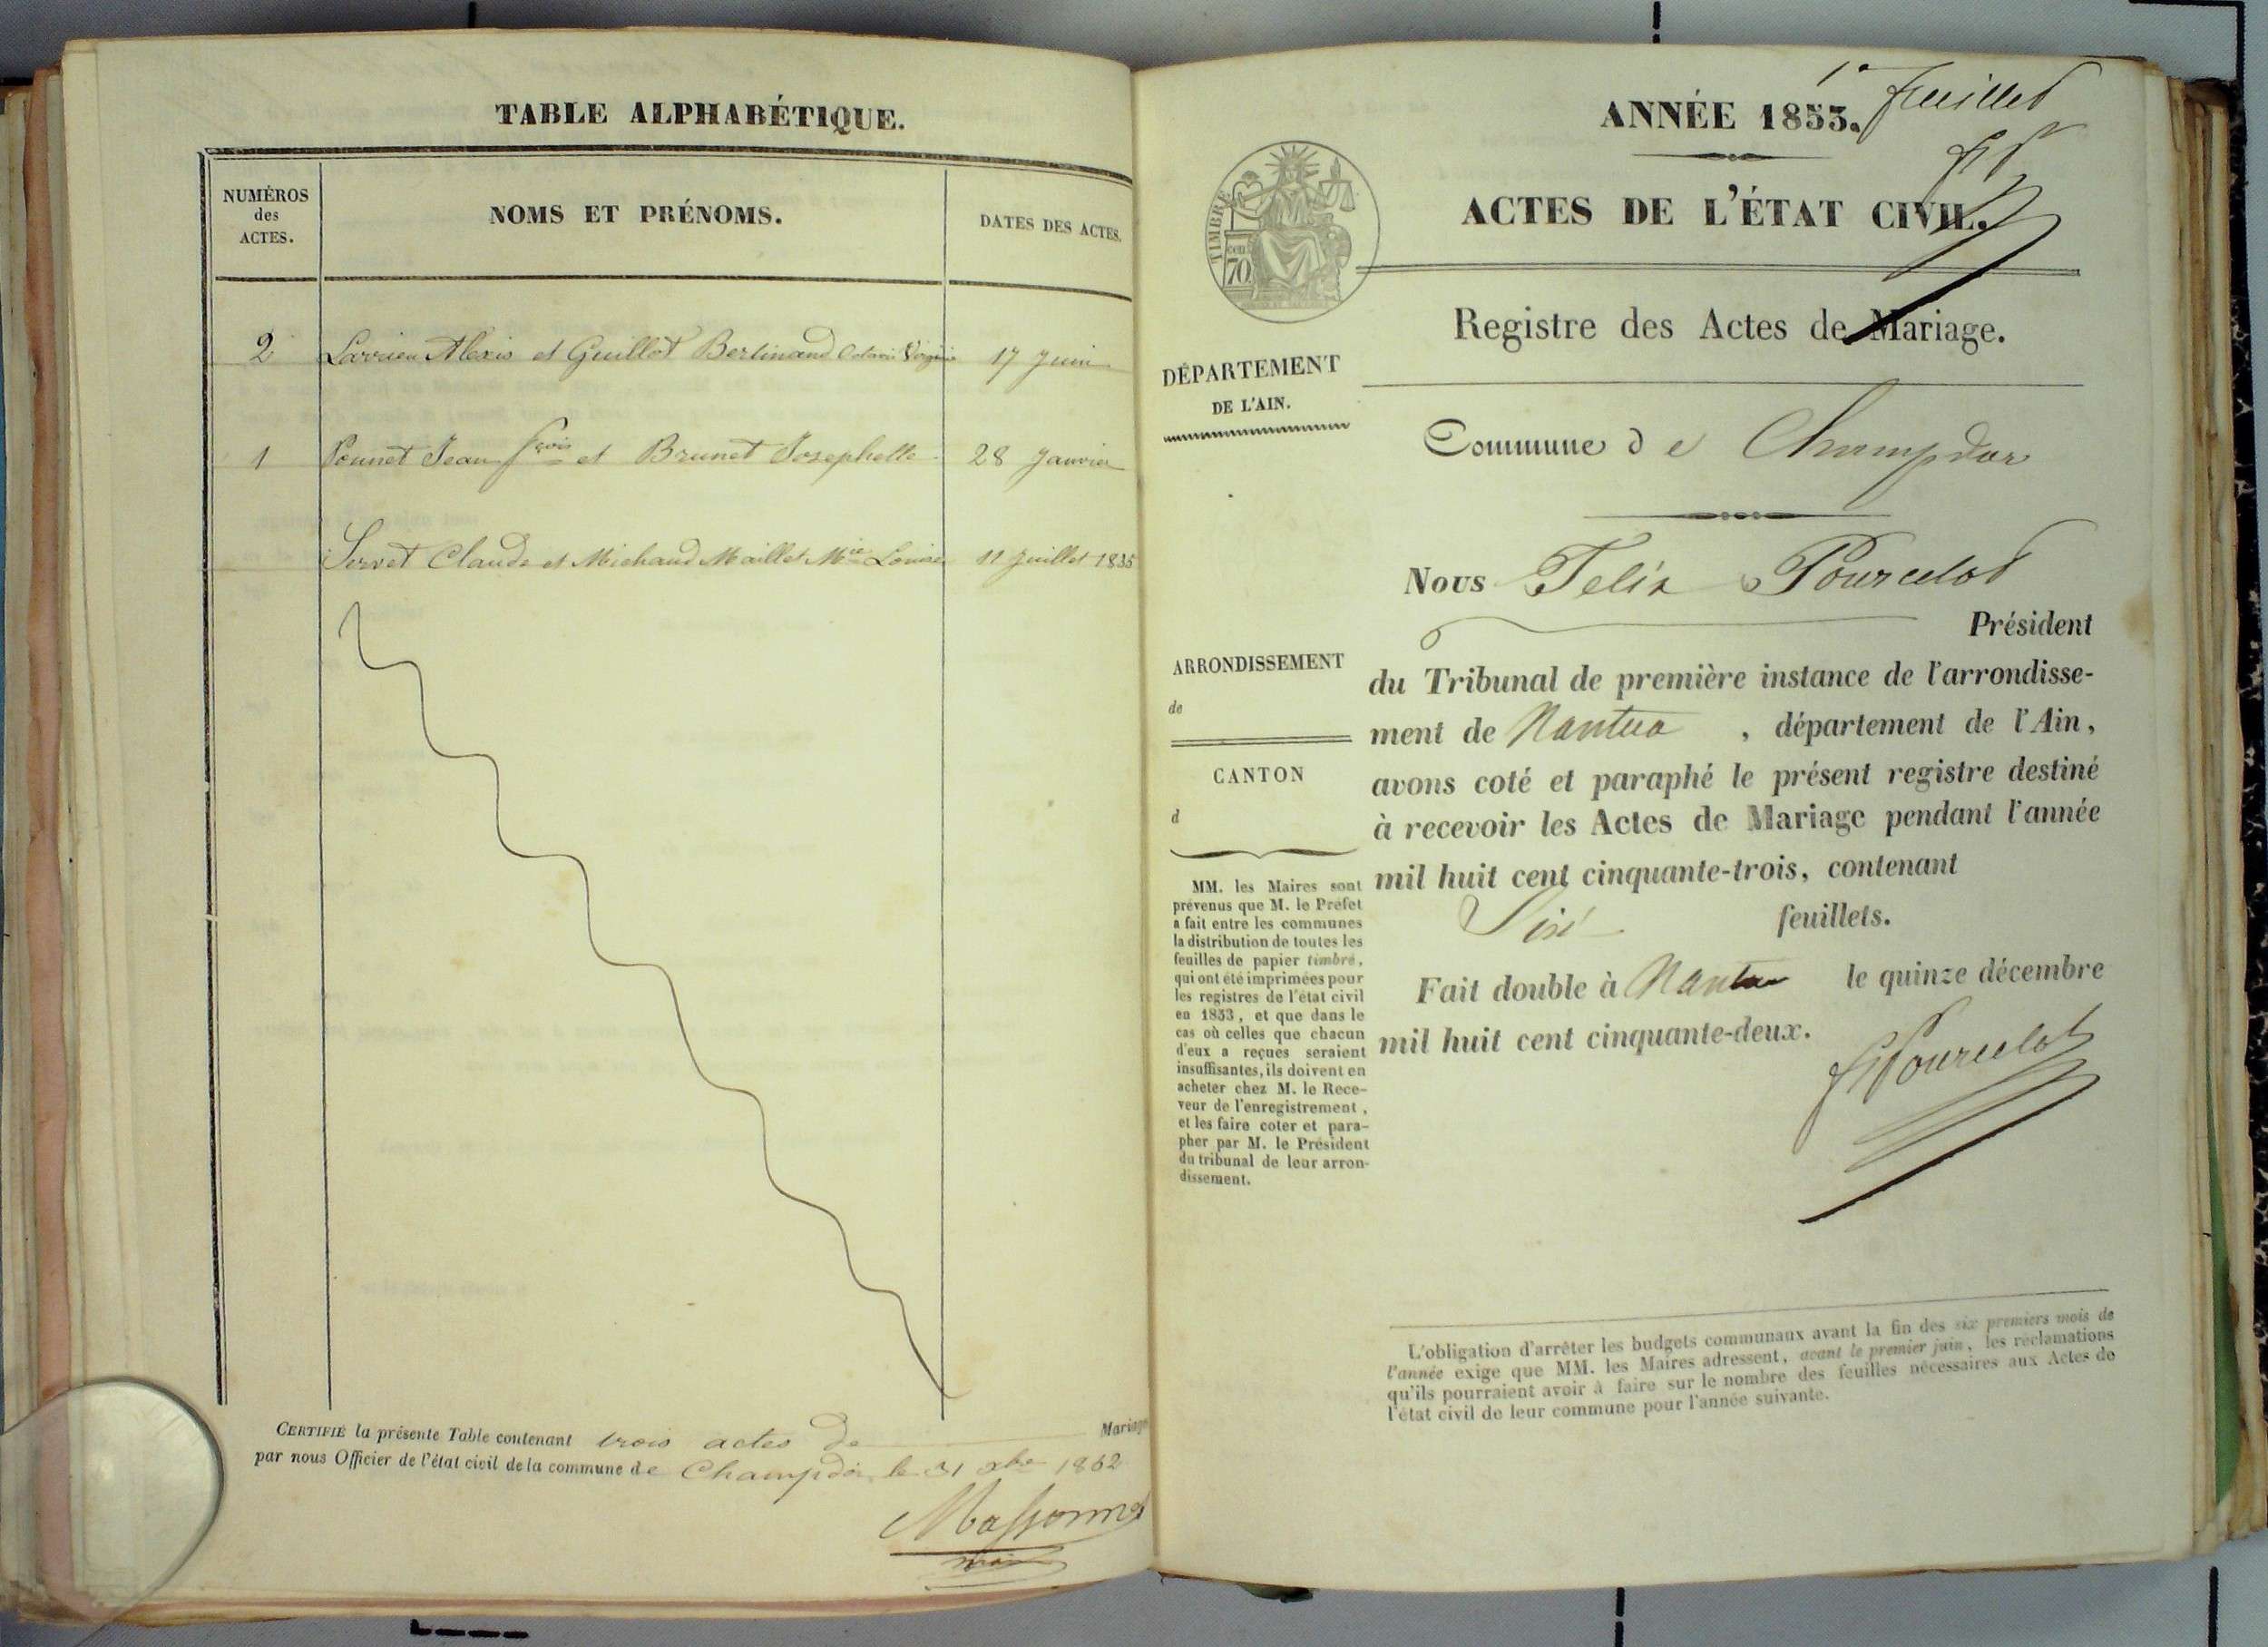 TABLE ALPHABÉTIQUE.
NUMÉROS des ACTES.
NOMS ET PRÉNOMS.
DATES DES ACTES.
2 Larrieu Alexis et Guillot Bertinand Octavie Virginie 17 Juin
1 Ponnet Jean fçois et Brunet Josephelle 28 Janvier
Servet Claude et Michaud Maillet Mie Louise 11 Juillet 1835
CERTIFIÉ la présente Table contenant trois actes de Mariage
par nous Officier de l'état civil de la commune de Champdor le 31 xbre 1852
Massonnet
maire
1er feuillet
ANNÉE 1853.
fP
ACTES DE L'ÉTAT CIVIL.
TIMBRE
cen. 70
Registre des Actes de Mariage.
DÉPARTEMENT
DE L'AIN.
Commune de Champdor
Nous Felix Pourcelot
Président
du Tribunal de première instance de l'arrondisse-
ment de Nantua , département de l'Ain,
avons coté et paraphé le présent registre destiné
à recevoir les Actes de Mariage pendant l'année
mil huit cent cinquante-trois, contenant
Six feuillets.
Fait double à Nantua le quinze décembre
mil huit cent cinquante-deux.
fPourcelot
ARRONDISSEMENT
de
CANTON
d
MM. les Maires sont
prévenus que M. le Préfet
a fait entre les communes
la distribution de toutes les
feuilles de papier timbré,
qui ont été imprimées pour
les registres de l'état civil
en 1853, et que dans le
cas où celles que chacun
d'eux a reçues seraient
insuffisantes, ils doivent en
acheter chez M. le Rece-
veur de l'enregistrement,
et les faire coter et para-
pher par M. le Président
du tribunal de leur arron-
dissement.
L'obligation d'arrêter les budgets communaux avant la fin des six premiers mois de
l'année exige que MM. les Maires adressent, avant le premier juin, les réclamations
qu'ils pourraient avoir à faire sur le nombre des feuilles nécessaires aux Actes de
l'état civil de leur commune pour l'année suivante.